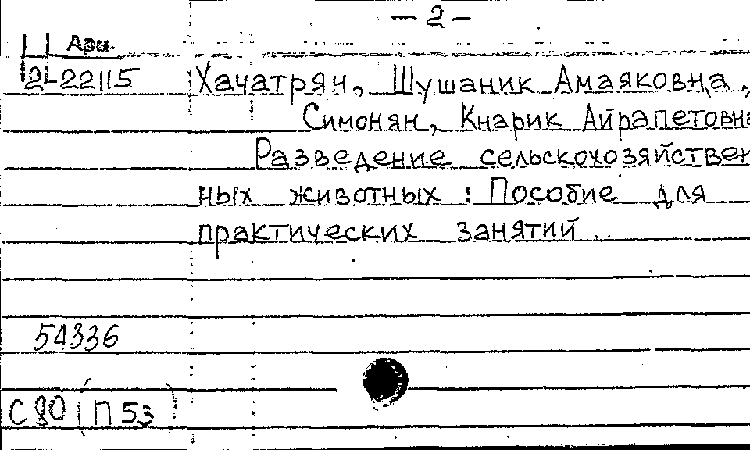 — 2 —
Арм.
2-22115
Хачатрян, Шушаник Амаяковна,
Симонян, Кнарик Айрапетовна
Разведение сельскохозяйствен
ных животных : Пособие для
практических занятий.
54336
С 80 (П 53)